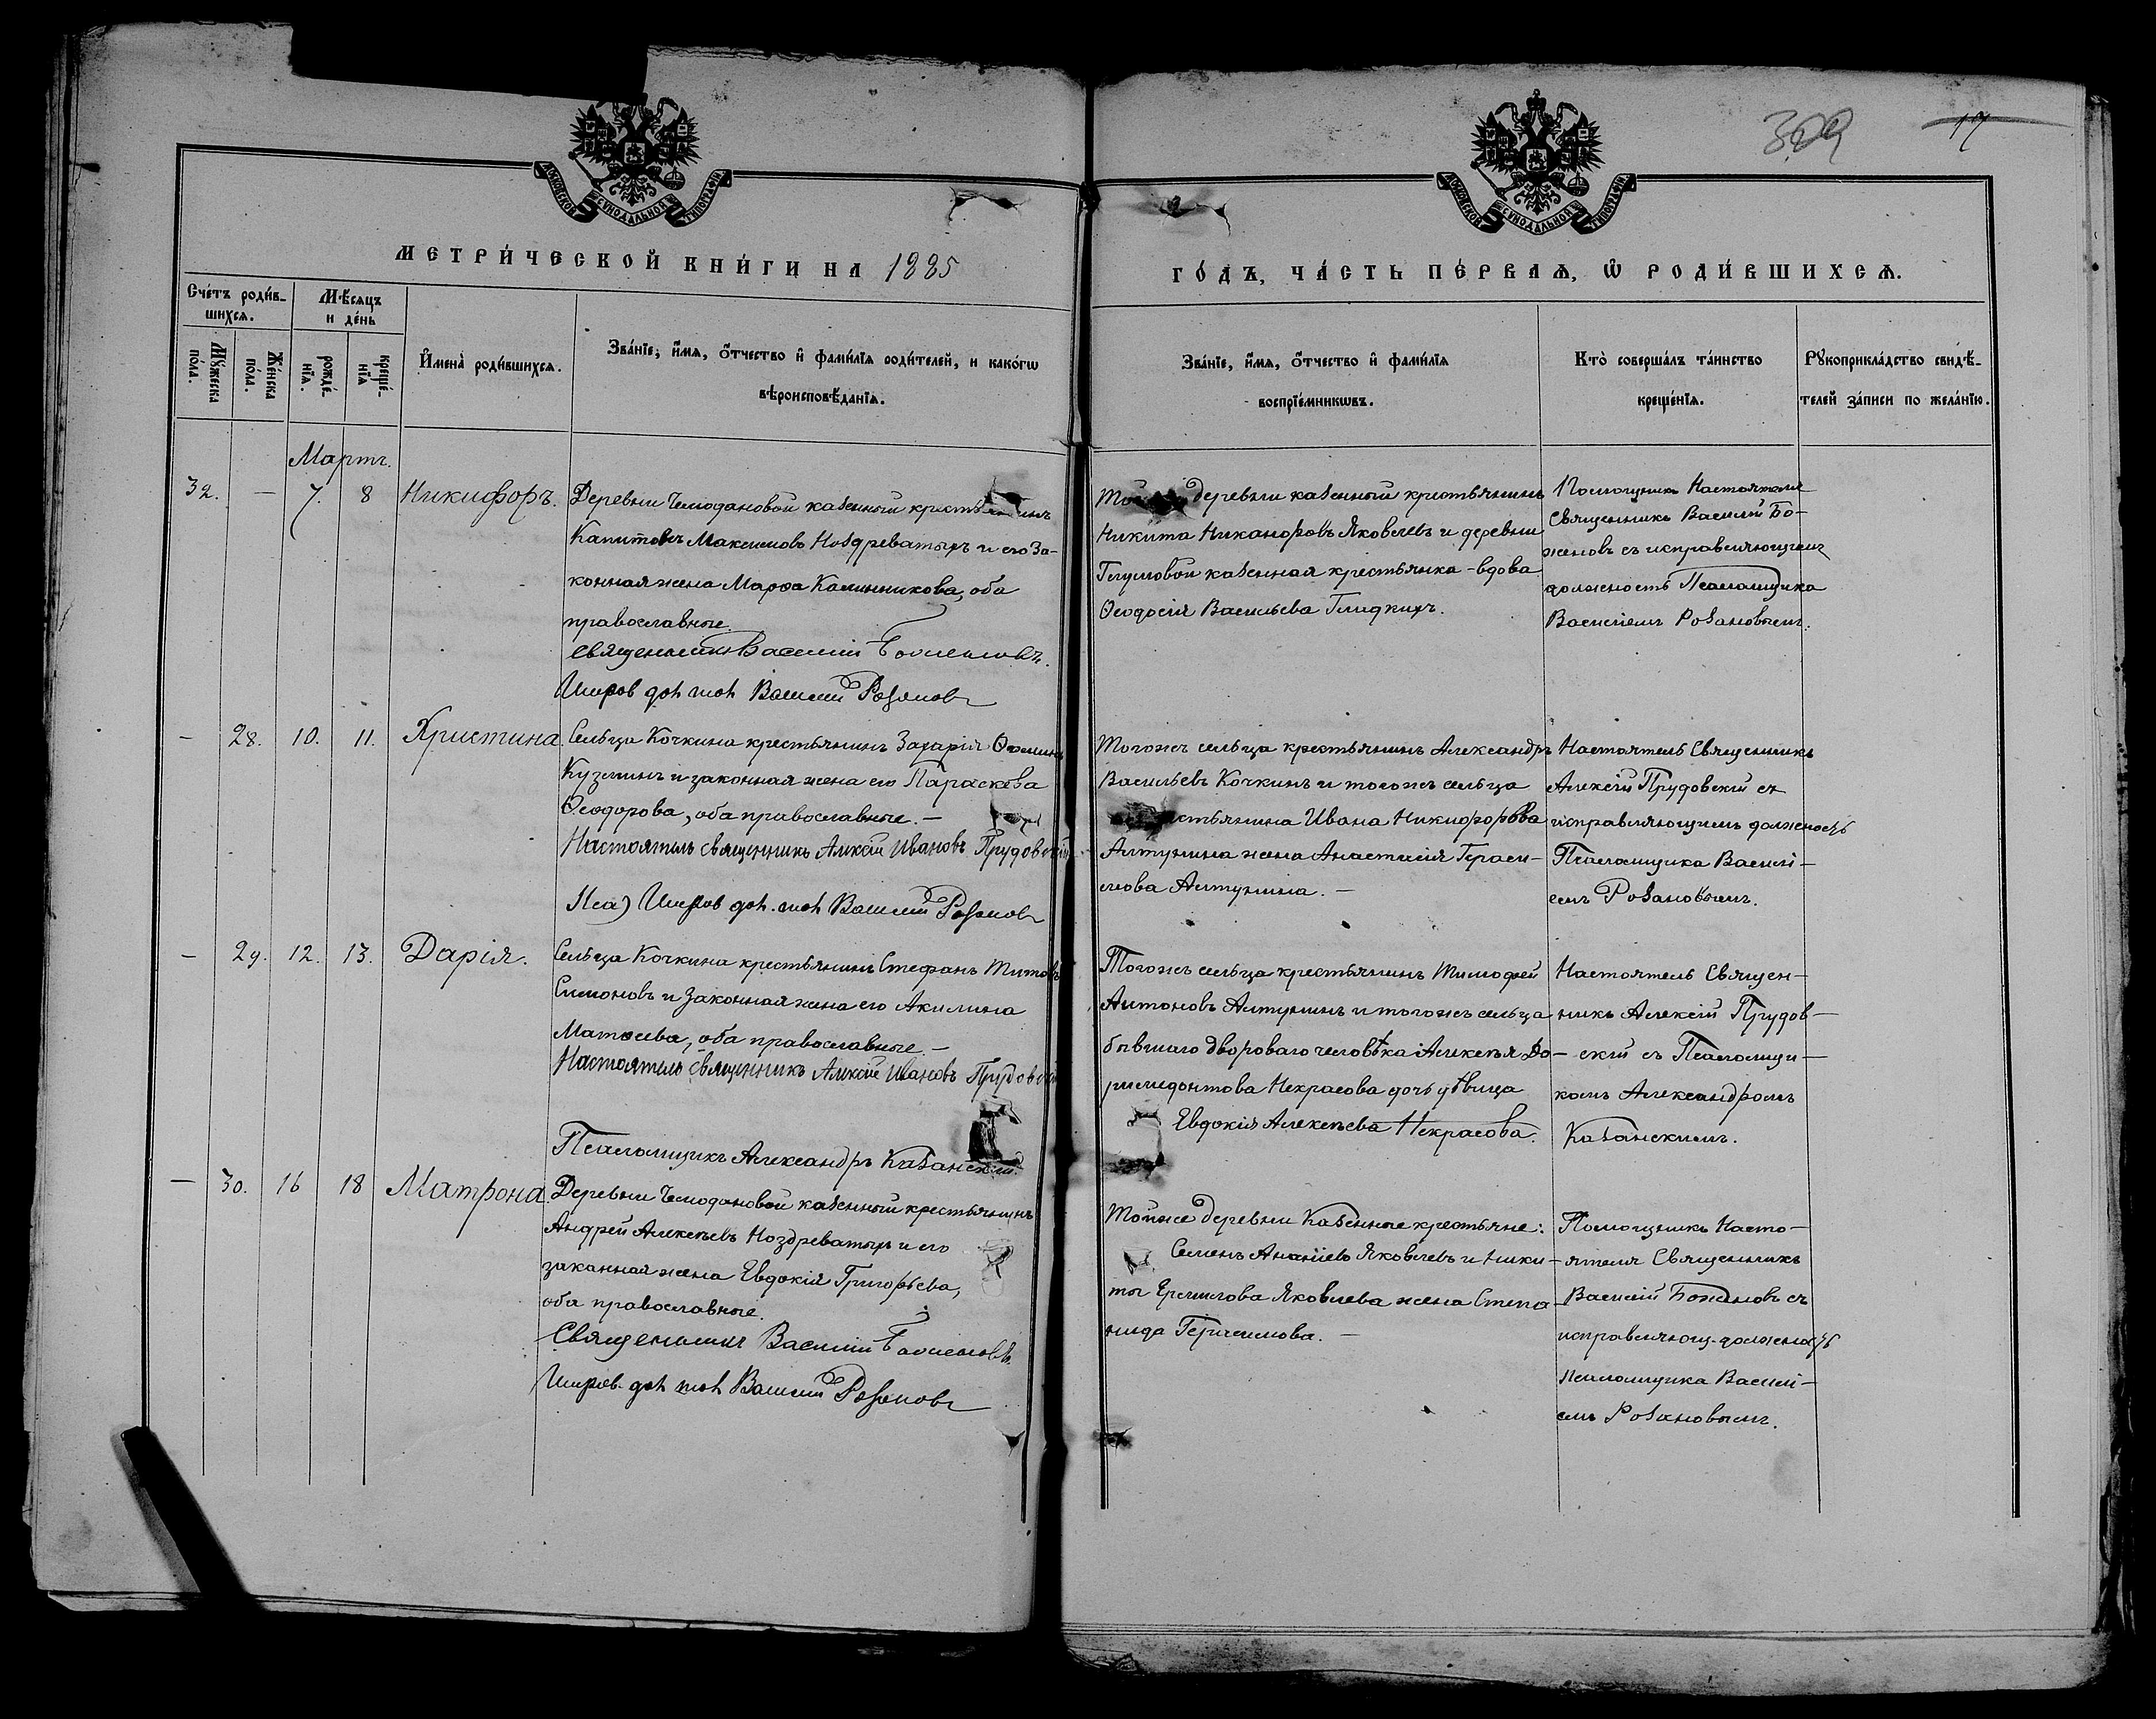 309 17
МОСКОВСКОЙ СУНОДАЛЬНОЙ ТИПОГРАФІИ
МОСКОВСКОЙ СУНОДАЛЬНОЙ ТИПОГРАФІИ
МЕТРИ́ЧЕСКОЙ КНИ́ГИ НА 1885
ГО́ДЪ, ЧА́СТЬ ПЕ́РВАѦ, Ѡ҆ РОДИ́ВШИХСѦ.
Сче́тъ роди́в-
шихсѧ.
Мѣ́сѧцъ
и де́нь
Мꙋ́жеска
по́ла.
Же́нска
по́ла.
рожде́-
нїѧ.
креще́-
нїѧ
И҆мена̀ роди́вшихсѧ.
Зва́нїе, и҆́мѧ, ѻ҆́тчество и҆ фами́лїѧ родителей, и како́гѡ
вѣроисповѣ́данїѧ.
Зва́нїе, и҆́мѧ, ѻ҆́тчество и҆ фами́лїѧ
воспрїе́мникѡвъ.
Кто̀ соверша́лъ та́инство
креще́нїѧ.
Рꙋкоприкла́дство свидѣ́-
телей за́писи по жела́нїю.
Мартъ.
32. — 7. 8 Никифоръ.
Деревни Чемодановой казенный крестьянинъ
Капитонъ Максимовъ Ноздреватыхъ и его за-
конная жена Марѳа Калинникова, оба
православные.
Священникъ Василій Боженовъ.
Испров дол псал Василий Розановъ
Той деревни казенный крестьянинъ
Никита Никаноровъ Яковлевъ и деревни
Глумовой казенная крестьянка - вдова
Ѳеодосія Васильева Гладкихъ.
Помощникъ Настоятеля
Священникъ Василій Бо-
женовъ съ исправляющимъ
должность Псаломщика
Василіемъ Розановымъ.
— 28. 10. 11. Христина.
Сельца Кочкина крестьянинъ Захарія Ѳоминъ
Кузминъ и законная жена его Параскева
Ѳеодорова, оба православные. —
Настоятель священникъ Алексій Ивановъ Прудовскій
Василий Розановъ
Тогожъ сельца крестьянинъ Александръ
Васильевъ Кочкинъ и тогожъ сельца
стьянина Ивана Никифорова
Алтунина жена Анастасія Гераси-
мова Алтунина. —
Настоятель Священникъ
Алексій Прудовскій съ
исправляющимъ должность
Псаломщика Василі-
емъ Розановымъ.
— 29. 12. 13. Дарія.
Сельца Кочкина крестьянинъ Стефанъ Титовъ
Симоновъ и законная жена его Акилина
Матѳеева, оба православные. —
Настоятель священникъ Алексій Ивановъ Прудовскій
Псаломщикъ Александръ Казанскій.
Тогожъ сельца крестьянинъ Тимофей
Антоновъ Алтунинъ и тогожъ сельца
бывшаго двороваго человѣка Алексѣя До-
римедонтова Некрасова дочь дѣвица
Евдокія Алексѣева Некрасова.
Настоятель Священ-
никъ Алексій Прудов-
скій съ Псаломщи-
комъ Александромъ
Казанскимъ.
— 30. 16 18 Матрона.
Деревни Чемодановой казенный крестьянинъ
Андрей Алексѣевъ Ноздреватыхъ и его
законная жена Евдокія Григорьева,
оба православные.
Священникъ Василій Боженовъ.
Испров. дол псал Василий Розановъ
Тойже деревни Казенные крестьяне:
Семенъ Ананіевъ Яковлевъ и Ники-
ты Ермилова Яковлева жена Степа-
нида Герасимова. —
Помощникъ Насто-
ятеля Священникъ
Василій Боженовъ съ
исправляющ. должность
Псаломщика Василі-
емъ Розановымъ.